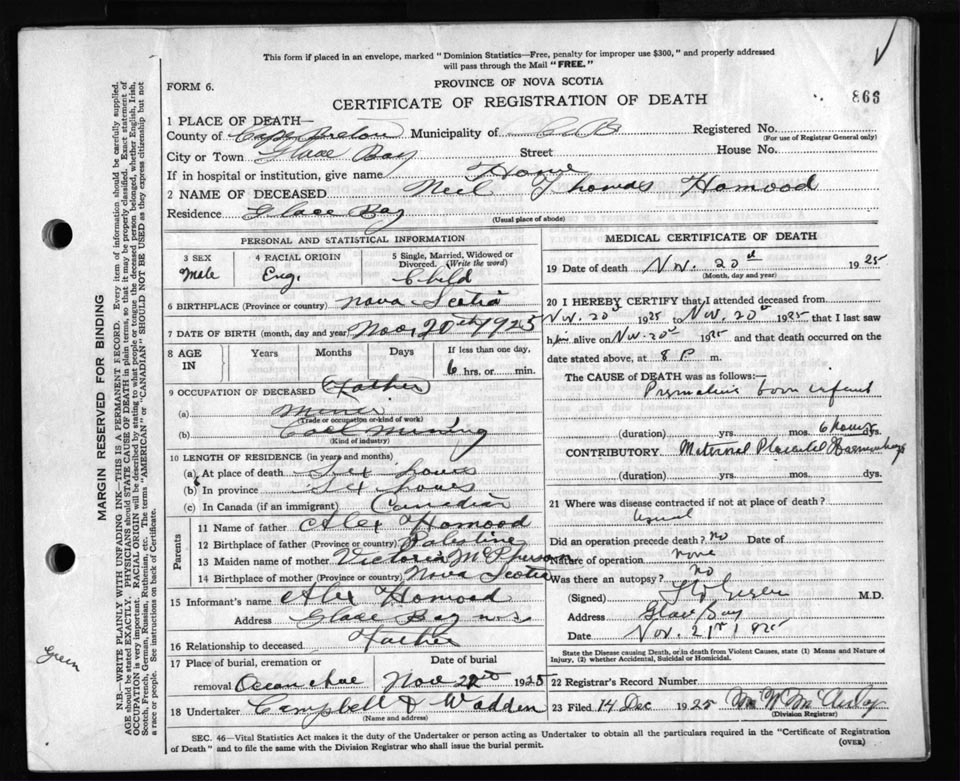 This form if placed in an envelope, marked "Dominion Statistics—Free, penalty for improper use $300," and properly addressed
will pass through the Mail "FREE."
FORM 6.
PROVINCE OF NOVA SCOTIA
CERTIFICATE OF REGISTRATION OF DEATH
866
1 PLACE OF DEATH—
County of Cape Breton Municipality of C B Registered No.
(For use of Registrar General only)
City or Town Glace Bay Street House No.
If in hospital or institution, give name Home
2 NAME OF DECEASED Neil Thomas Homood
Residence Glace Bay
(Usual place of abode)
PERSONAL AND STATISTICAL INFORMATION
3 SEX 4 RACIAL ORIGIN 5 Single, Married, Widowed or Divorced. (Write the word)
Male Eng. Child
6 BIRTHPLACE (Province or country) Nova Scotia
7 DATE OF BIRTH (month, day and year) Nov 20th 1925
8 AGE IN Years Months Days If less than one day,
6 hrs. or min.
9 OCCUPATION OF DECEASED (Father)
(a) Miner
(Trade or occupation or kind of work)
(b) Coal Mining
(Kind of industry)
10 LENGTH OF RESIDENCE (in years and months)
(a) At place of death Six hours
(b) In province Six hours
(c) In Canada (if an immigrant) Canadian
Parents
11 Name of father Alex Homood
12 Birthplace of father (Province or country) Palestine
13 Maiden name of mother Victoria McPherson
14 Birthplace of mother (Province or country) Nova Scotia
15 Informant's name Alex Homood
Address Glace Bay N.S
16 Relationship to deceased Father
17 Place of burial, cremation or removal Date of burial
Nov 22nd 1925
18 Undertaker Campbell & Wadden
(Name and address)
MEDICAL CERTIFICATE OF DEATH
19 Date of death Nv. 20th 1925
(Month, day and year)
20 I HEREBY CERTIFY that I attended deceased from
Nv. 20th 1925 to Nv. 20th 1925 that I last saw
him alive on Nv. 20th 1925 and that death occurred on the
date stated above, at 8 P m.
The CAUSE OF DEATH was as follows:—
Premature born infant
(duration) yrs. mos. 6 hours dys.
CONTRIBUTORY Maternal Placental Haemorrhage
(duration) yrs. mos. dys.
21 Where was disease contracted if not at place of death?
Usual
Did an operation precede death? no Date of
Nature of operation none
Was there an autopsy? no
(Signed) M.D.
Address Glace Bay
Date Nov. 21st 1925
State the Disease causing Death, or in death from Violent Causes, state (1) Means and Nature of
Injury, (2) whether Accidental, Suicidal or Homicidal.
22 Registrar's Record Number
23 Filed 14 Dec 1925
(Division Registrar)
SEC. 46—Vital Statistics Act makes it the duty of the Undertaker or person acting as Undertaker to obtain all the particulars required in the "Certificate of Registration
of Death" and to file the same with the Division Registrar who shall issue the burial permit.
(OVER)
MARGIN RESERVED FOR BINDING
N.B.—WRITE PLAINLY WITH UNFADING INK—THIS IS A PERMANENT RECORD. Every item of information should be carefully supplied.
AGE should be stated EXACTLY. PHYSICIANS should STATE CAUSE OF DEATH in plain terms, so that it may be properly classified. Exact statement of
OCCUPATION is very important. RACIAL ORIGIN will be described by stating to what people or tongue the deceased person belonged, whether English, Irish,
Scotch, French, German, Russian, Ruthenian, etc. The terms "AMERICAN" or "CANADIAN" SHOULD NOT BE USED as they express citizenship but not
a race or people. See instructions on back of Certificate.
Green